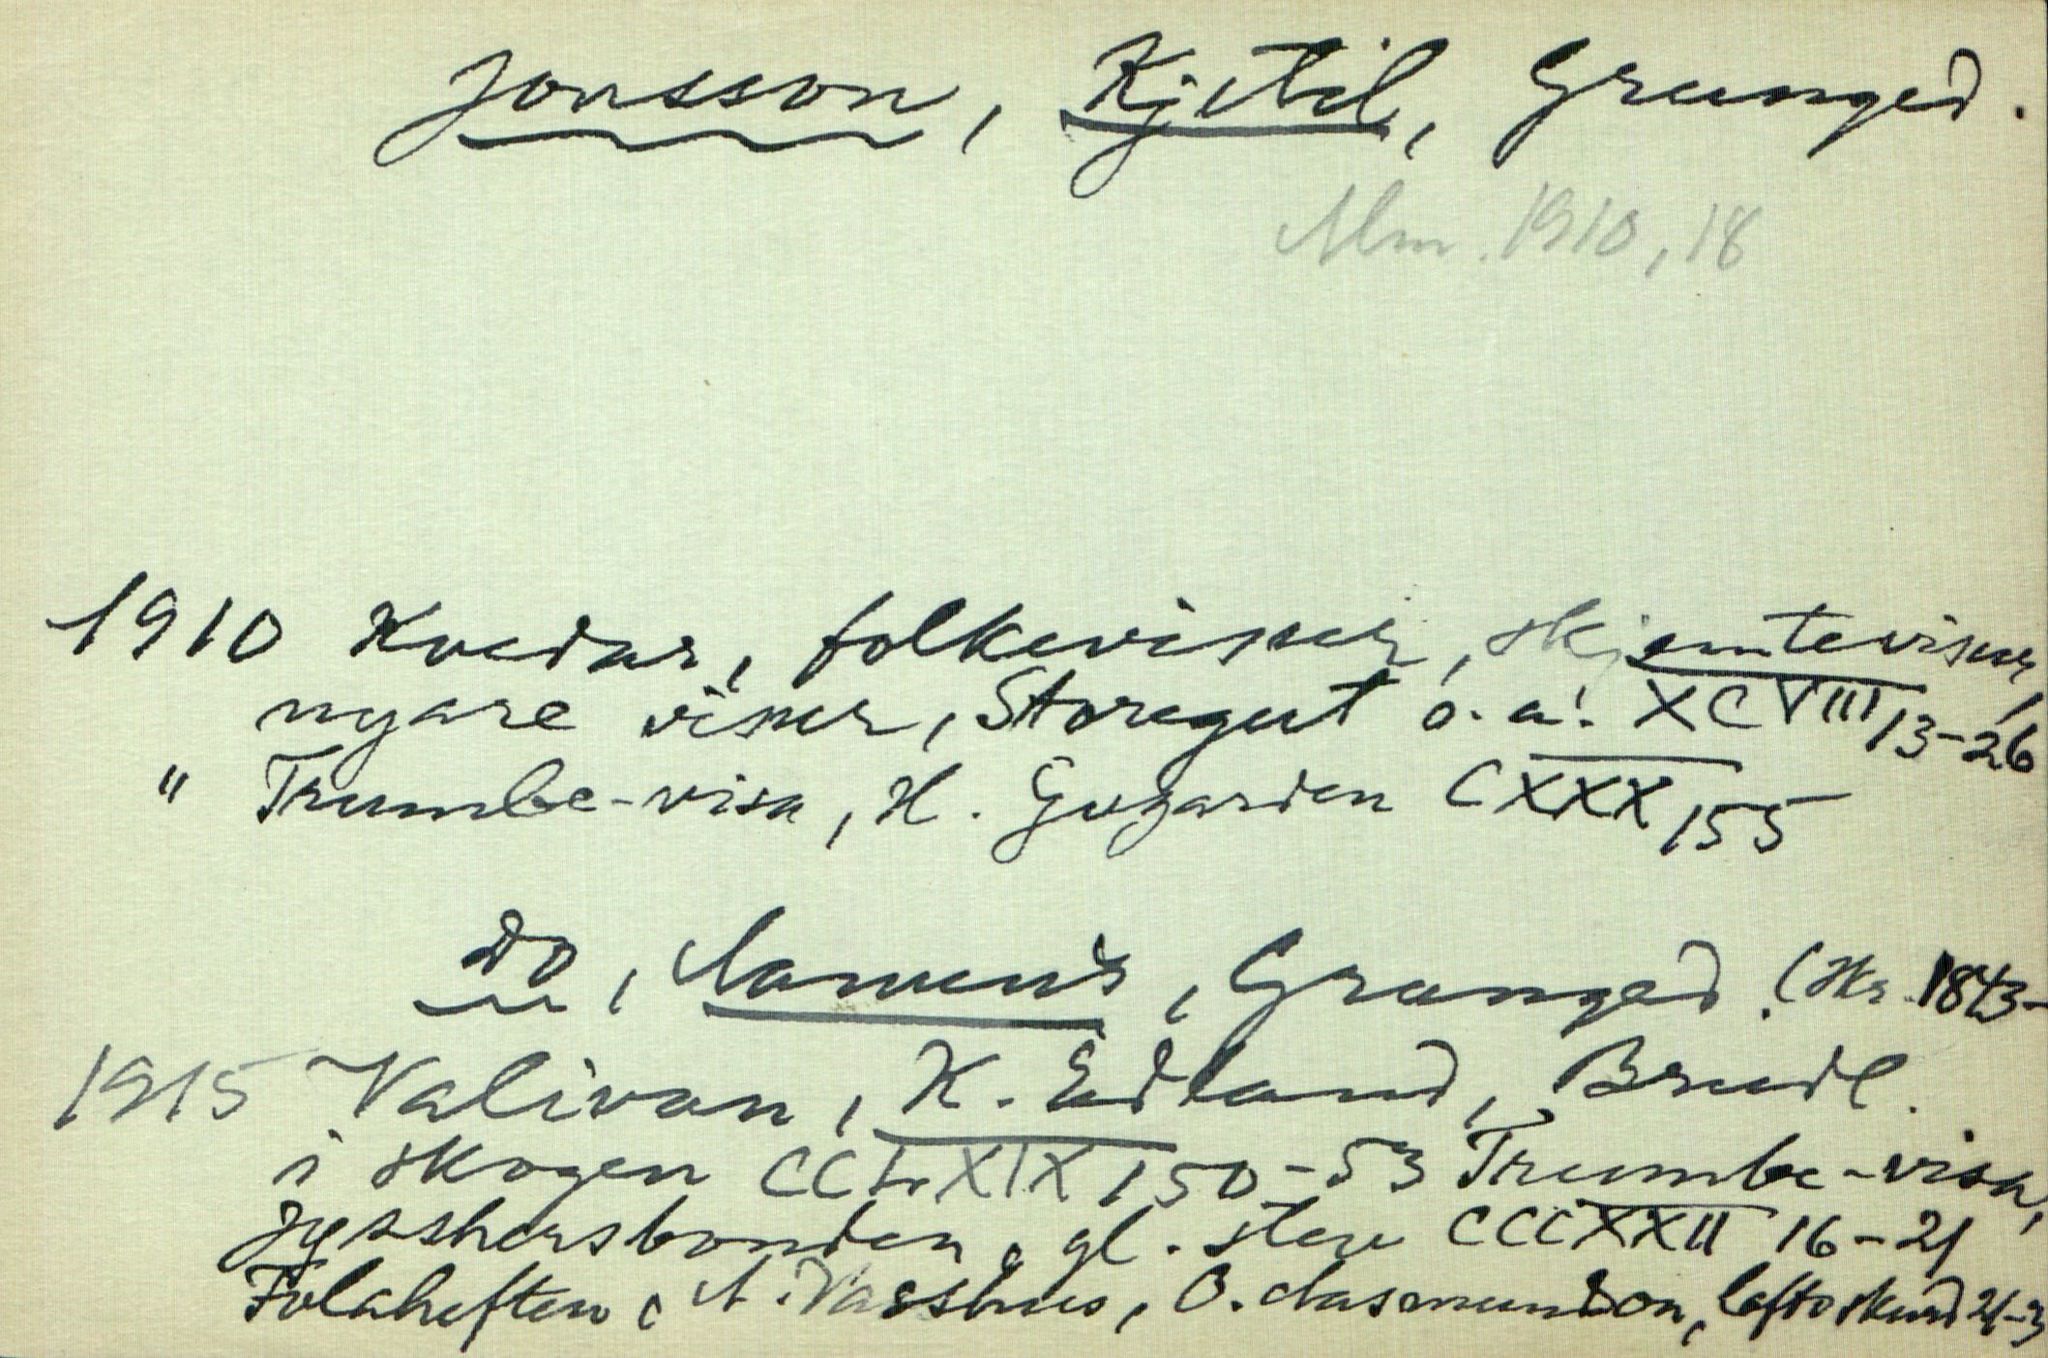 Jonsson, Kjetil, Grunged.
Mm. 1910, 18
1910 Kvedar, folkeviser, skjemteviser,
nyare viser, Storegut o.a. XCVIII 13-26
" Trumbe-visa, H. Gugarden CXXX 155
Do, Aamund, Grunged. (Kr. 1843-
1915 Valivan, K. Edland, Brudl.
i skogen CCLXIX 150-53 Trumbe-visa,
Jyssheersbonden, gl. stev CCCXXII 16-21
Folaheften, A. Vasshus, O. Aasmundson, loftoskurd 21-3